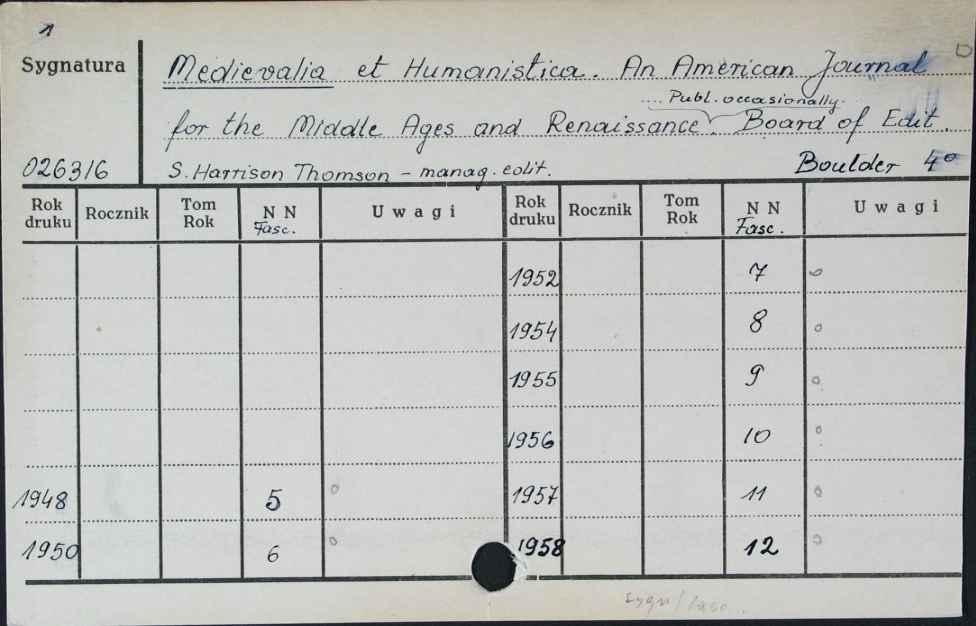 1
Sygnatura
Medievalia et Humanistica. An American Journal
Publ. occasionally.
for the Middle Ages and Renaissance. Board of Edit.
026316 S. Harrison Thomson – manag. edit. Boulder 4°
Rok druku Rocznik Tom Rok NN Fasc. Uwagi Rok druku Rocznik Tom Rok NN Fasc. Uwagi
1952 7
1954 8
1955 9
1956 10
1948 5 1957 11
1950 6 1958 12